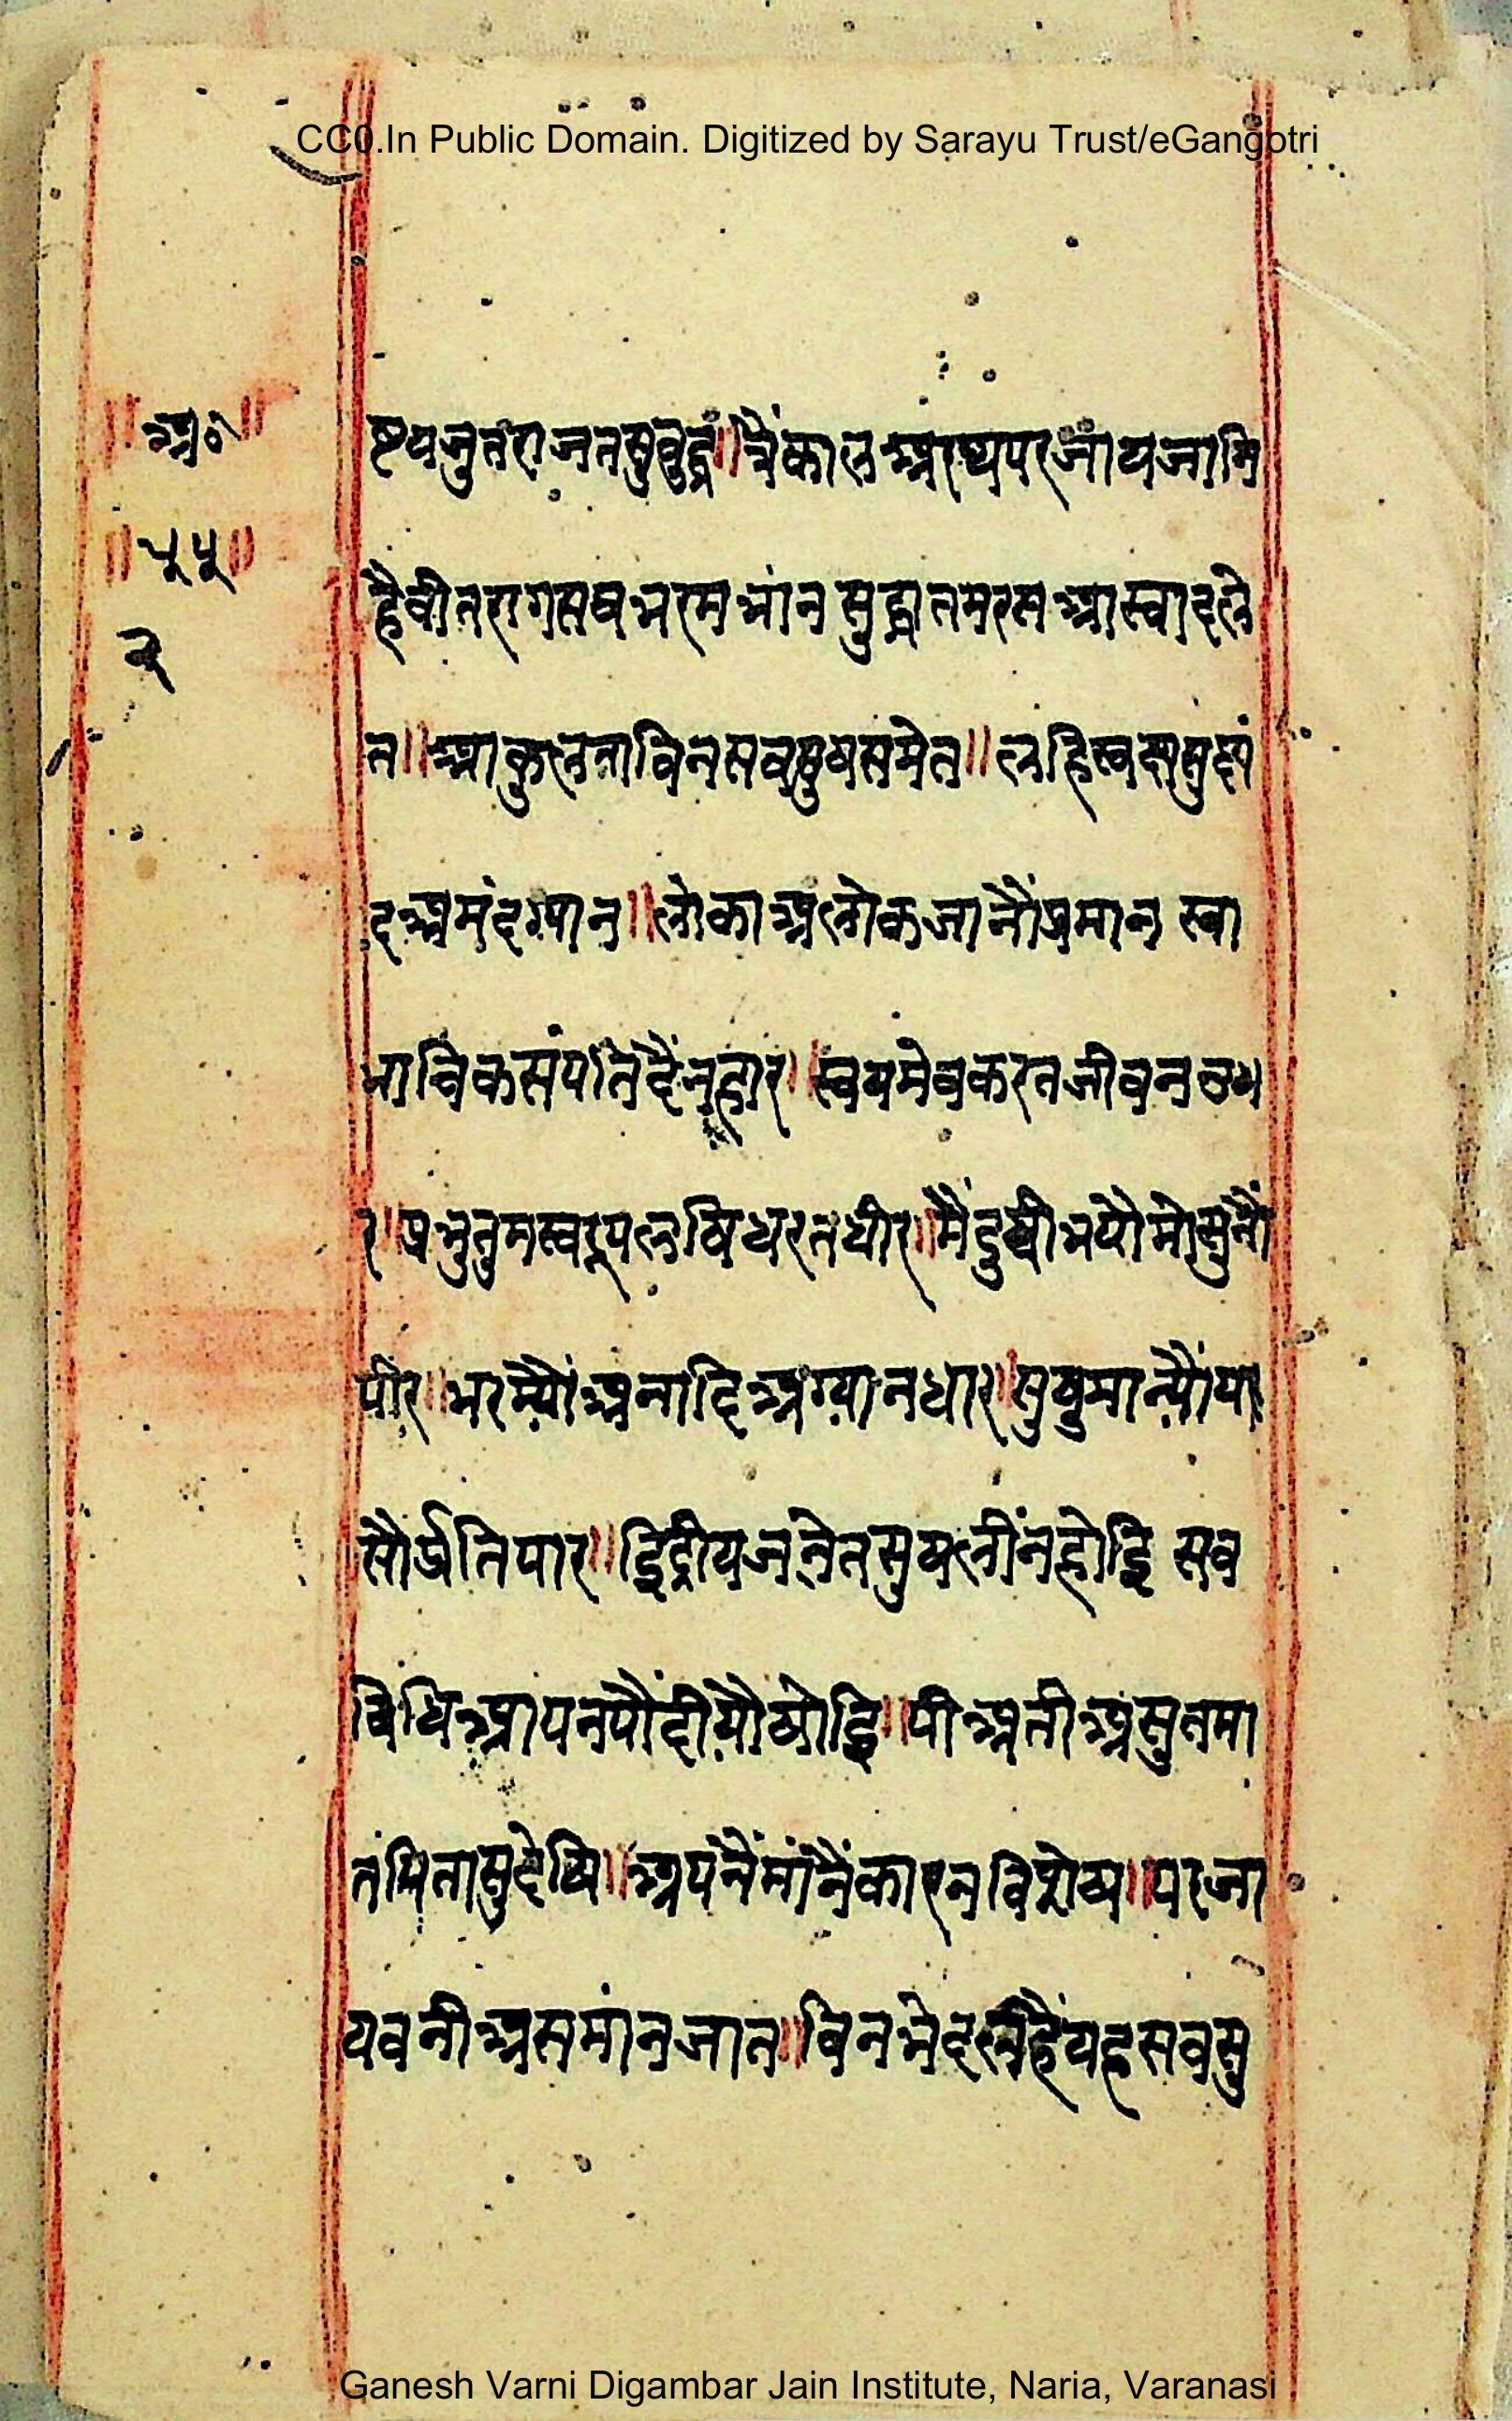 CC0.In Public Domain. Digitized by Sarayu Trust/eGangotri
॥अ०॥
॥५५॥
२
ष्टयजुतराजतसुबुद्ध॥त्रैंकालअरिथपरजायजानि
हैवीतरागसबभरमभांनसुद्धातमरसआस्वादले
त॥आकुलताविनसवसुषसमेत॥लहिस्वछसुछं
दअमंदग्यान॥लोकाअलोकजानैंप्रमान स्वा
भाविकसंपतिदैंनहार॥स्वयमेवकरतजीवनउधा
र॥प्रभुतुमस्वरूपलषिधरतधीर॥मैंदुषीभयौमोसुनौं
पीर॥भरम्यौंअनादिअग्यानधार॥सुषुमान्यौंया
सौंप्रतिपार॥इिंद्रीयजनेतसुषलींनहोइि सव
विधिआपनपौंदीयौषोइि॥पीअतीअसुतमा
तपितासुदेषि॥अपनैंमांनैंकारनविशेष॥परजा
यवनीअसमांनजात॥विनभेदलहैंयहसवसु
Ganesh Varni Digambar Jain Institute, Naria, Varanasi